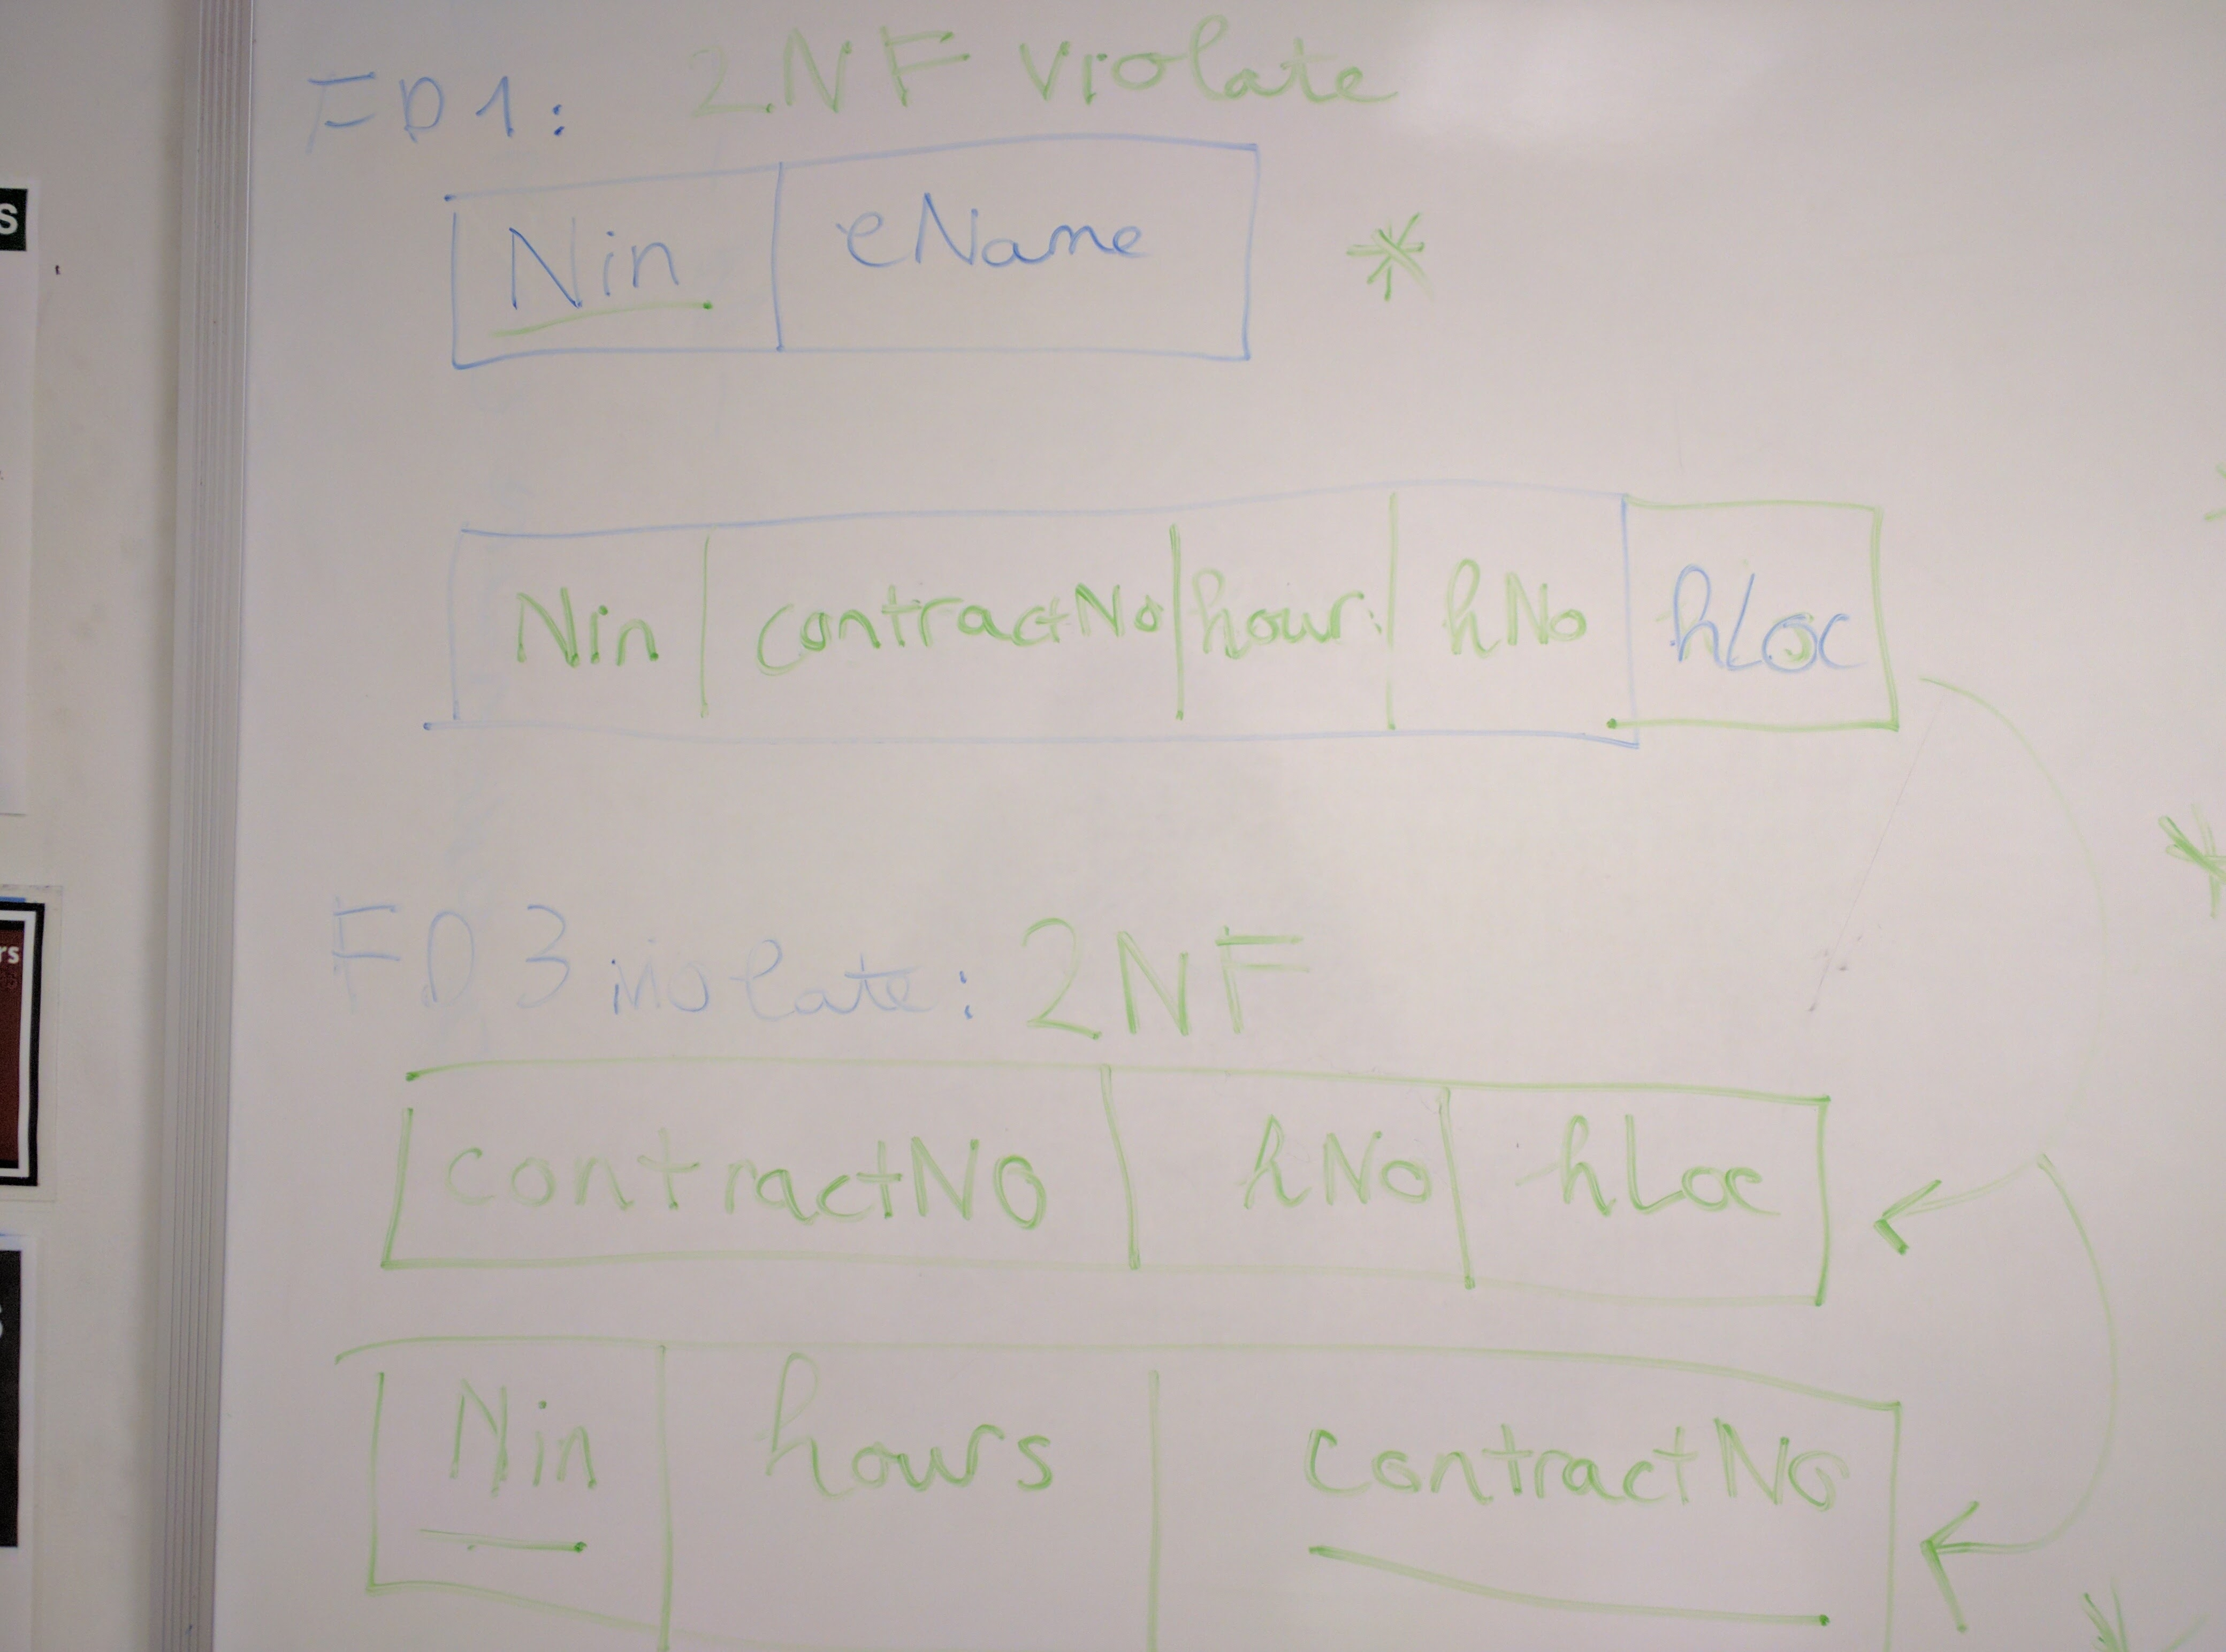 FD1: 2.NF violate
Nin eName *
Nin contractNo hour hNo hLoc
FD3 violate: 2NF
contractNo hNo hLoc
Nin hours contractNo
S
rs